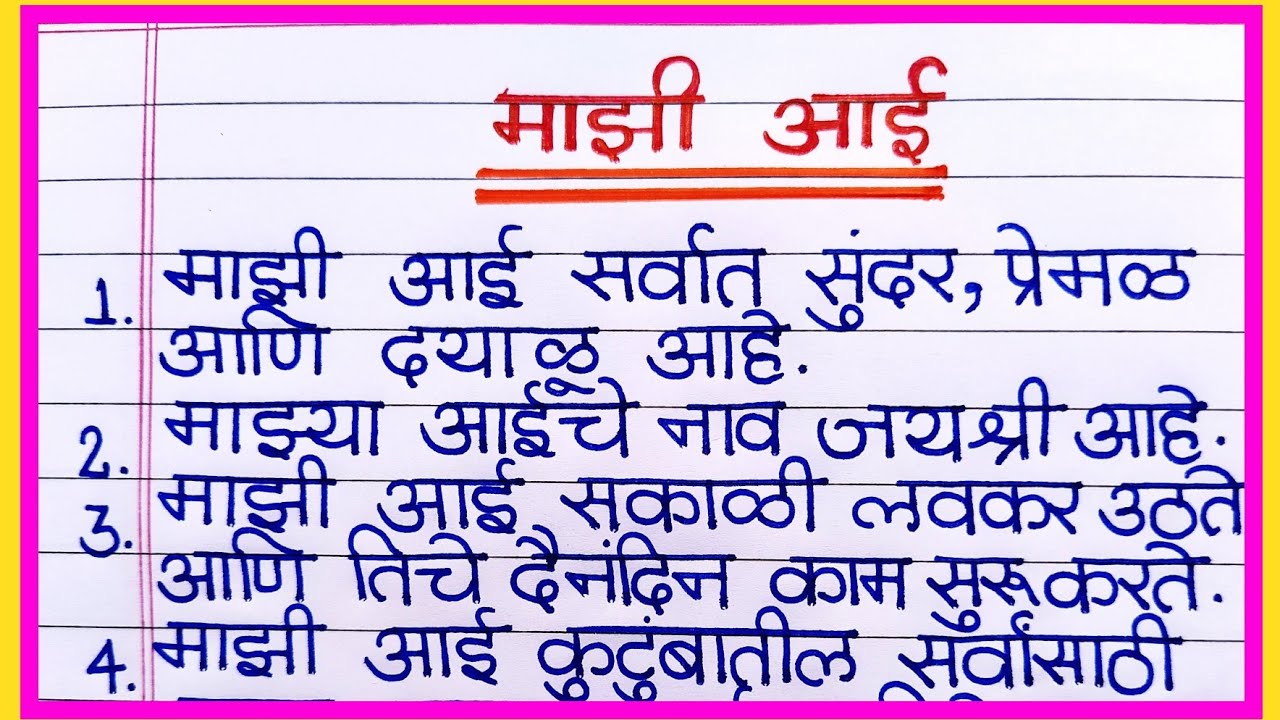 माझी आई
1. माझी आई सर्वात सुंदर, प्रेमळ
आणि दयाळू आहे.
2. माझ्या आईचे नाव जयश्री आहे.
3. माझी आई सकाळी लवकर उठते
आणि तिचे दैनंदिन काम सुरू करते.
4. माझी आई कुटुंबातील सर्वांसाठी